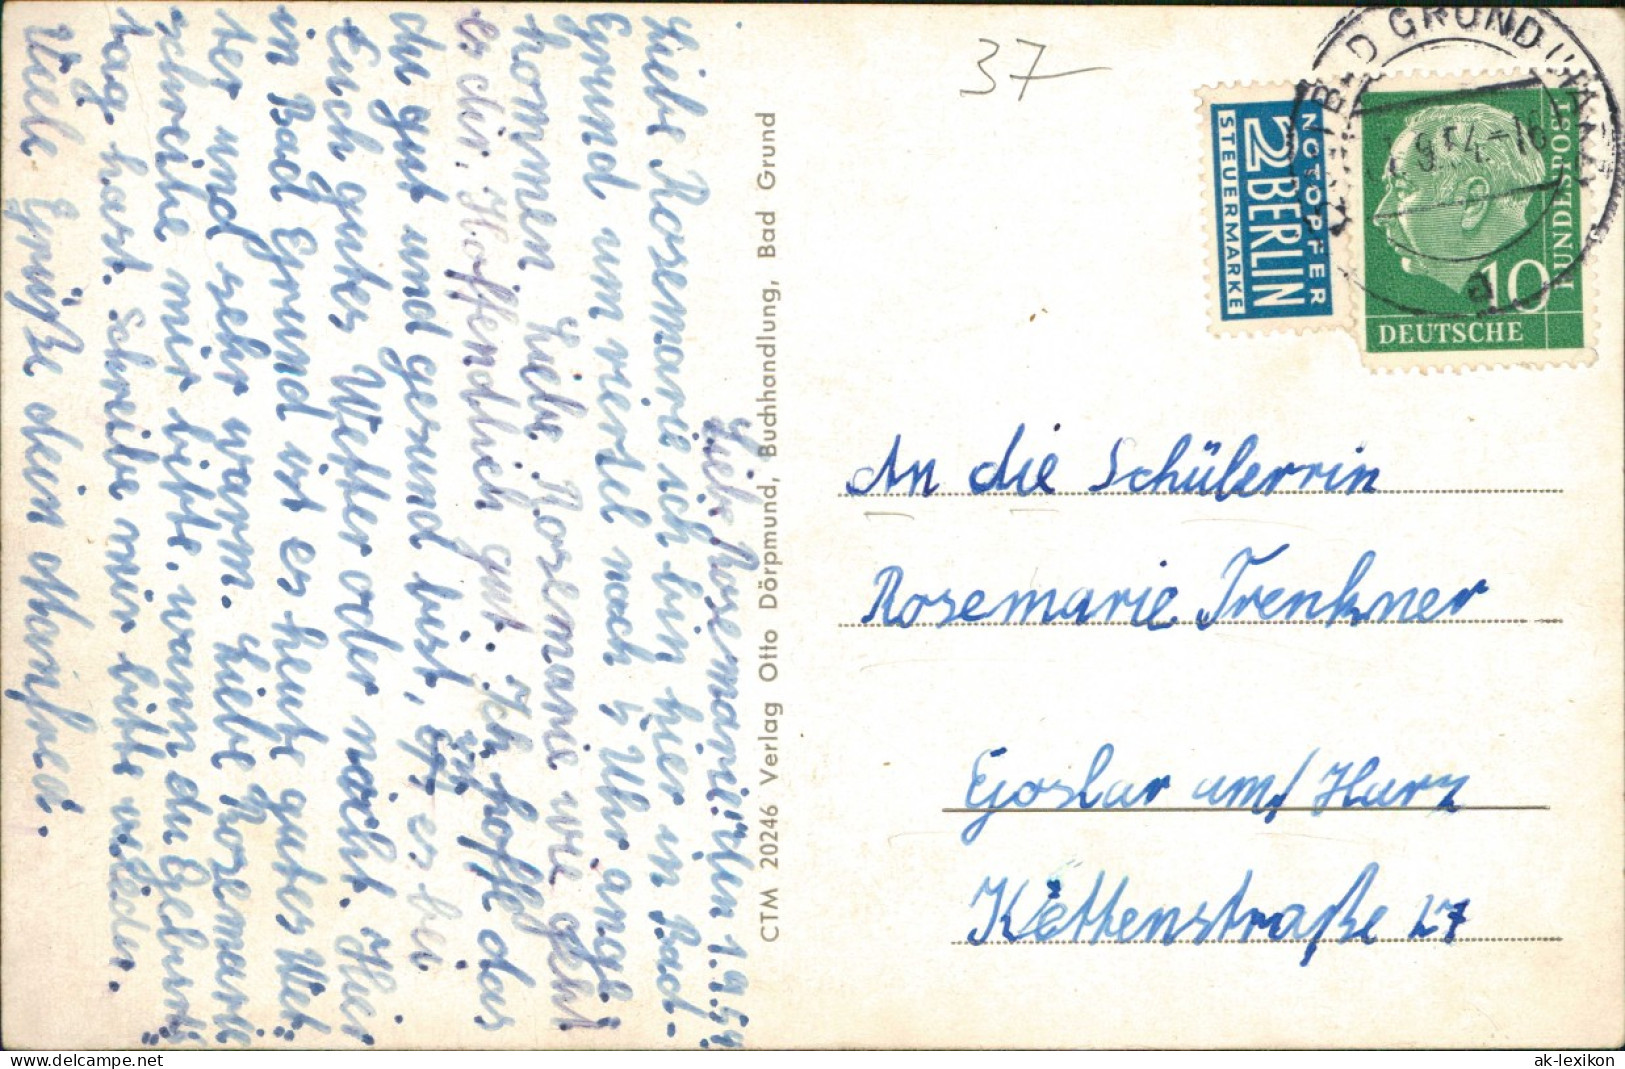 Liebe Rosemarie! den 1.9.54
Liebe Rosemarie ich bin hier in Bad-
Grund um viertel nach 5 Uhr ange
kommen. Liebe Rosemarie wie geht
es dir, Hoffendlich gut. Ich hoffe das
du gut und gesund bist, es bei
Euch gutes Wetter oder nöcht. Hier
in Bad Grund ist es heute gutes Wet
ter und sehr warm. Liebe Rosemarie
schreibe mir bitte. wann du Geburts
tag hast. Schreibe mir bitte wieder.
Viele Grüße dein Manfred.
CTM 20246 Verlag Otto Dörpmund, Buchhandlung, Bad Grund
37
NOTOPFER
2 BERLIN
STEUERMARKE
BAD GRUND (HARZ)
9.54.-18
a
10
DEUTSCHE
BUNDESPOST
An die Schülerrin
Rosemarie Trenkner
Goslar am/Harz
Kettenstraße 27
ak-ansichtskarten.de
ak-lexikon